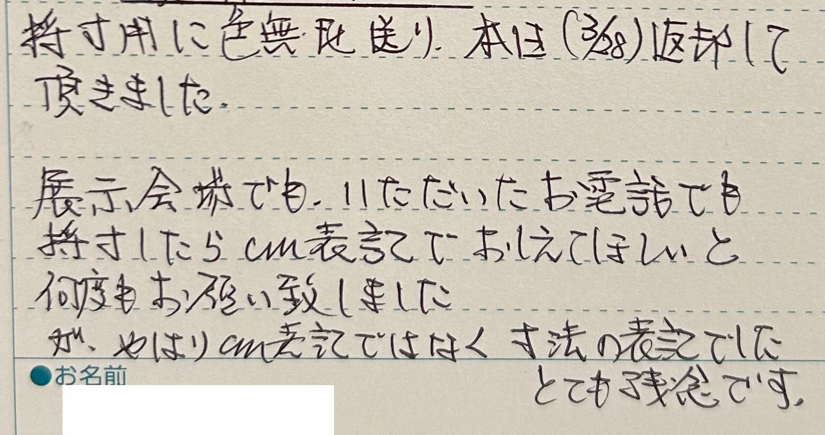 採寸用に色無地送り、本日(3/28)返却して
頂きました。
展示会場でも、いただいたお電話でも
採寸したらcm表記でおしえてほしいと
何度もお願い致しました
が、やはりcm表記ではなく寸法の表記でした
とても残念です。
●お名前